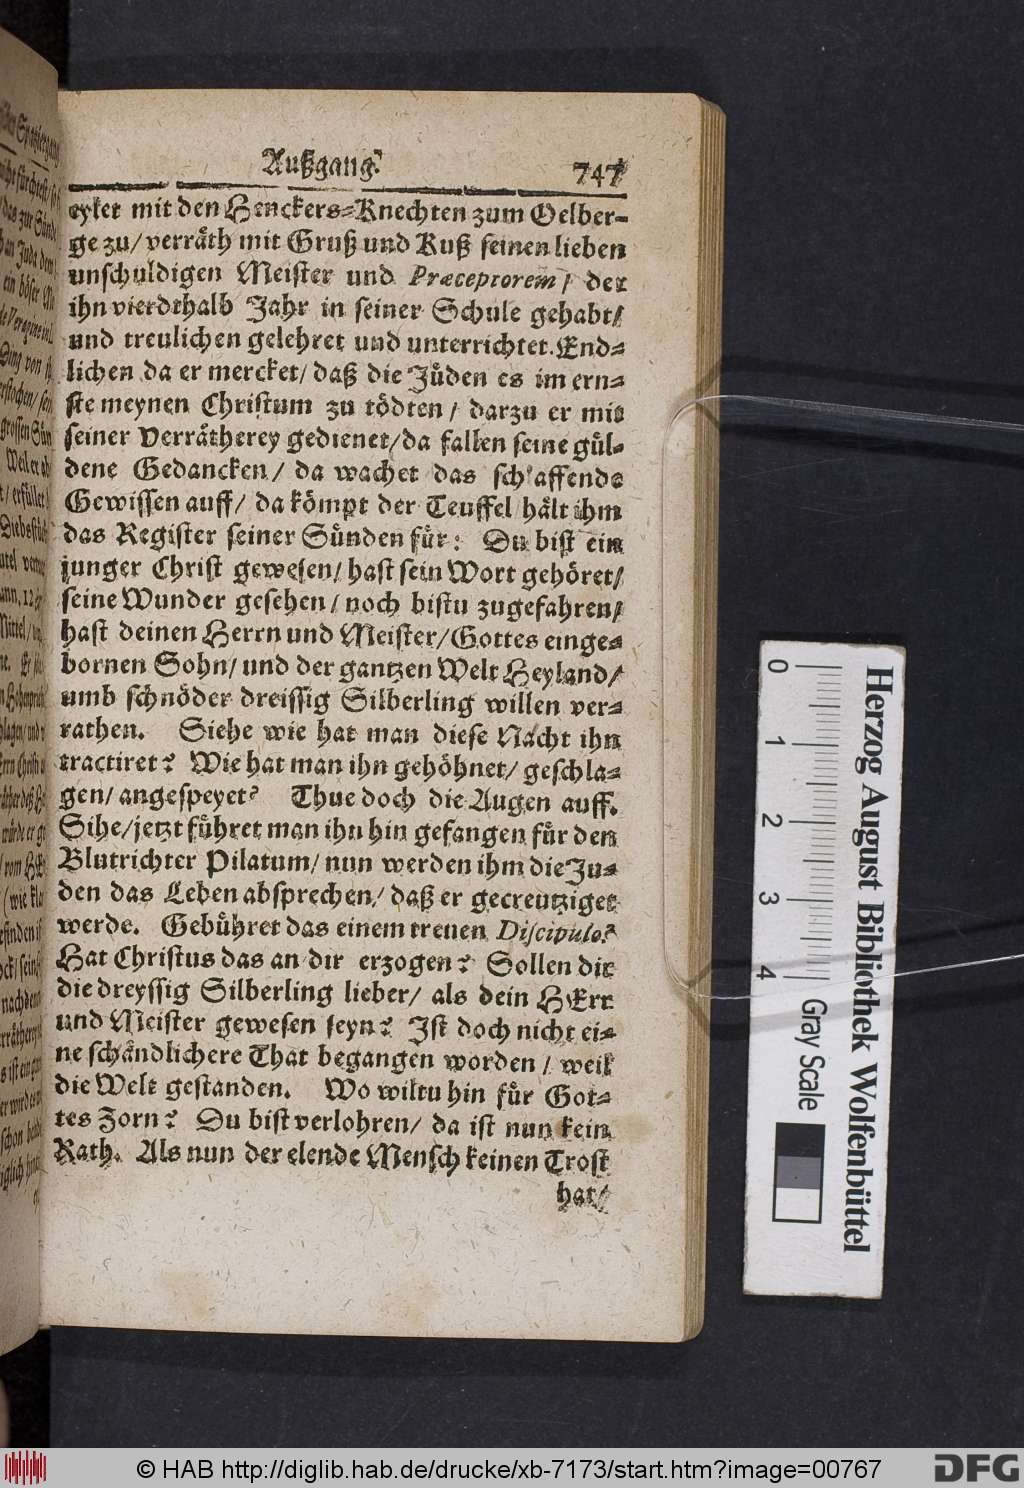 Außgang. 747
eylet mit den Henckers-Knechten zum Oelber-
ge zu/ verräth mit Gruß und Kuß seinen lieben
unschuldigen Meister und Præceptorem/ der
ihn vierdthalb Jahr in seiner Schule gehabt/
und treulichen gelehret und unterrichtet. End-
lichen da er mercket/ daß die Jüden es im ern-
ste meynen Christum zu tödten/ darzu er mit
seiner Verrätherey gedienet/ da fallen seine gül-
dene Gedancken/ da wachet das schlaffende
Gewissen auff/ da kömpt der Teuffel/ hält ihm
das Register seiner Sünden für: Du bist ein
junger Christ gewesen/ hast sein Wort gehöret/
seine Wunder gesehen/ noch bistu zugefahren/
hast deinen Herrn und Meister/ Gottes einge-
bornen Sohn/ und der gantzen Welt Heyland/
umb schnöder dreissig Silberling willen ver-
rathen. Siehe wie hat man diese Nacht ihn
tractiret? Wie hat man ihn gehöhnet/ geschla-
gen/ angespeyet? Thue doch die Augen auff.
Sihe/ jetzt führet man ihn hin gefangen für den
Blutrichter Pilatum/ nun werden ihm die Ju-
den das Leben absprechen/ daß er gecreutziget
werde. Gebühret das einem treuen Discipulo?
Hat Christus das an dir erzogen? Sollen dir
die dreyssig Silberling lieber/ als dein HErr
und Meister gewesen seyn? Ist doch nicht ei-
ne schändlichere That begangen worden/ weil
die Welt gestanden. Wo wiltu hin für Got-
tes Zorn? Du bist verlohren/ da ist nun kein
Rath. Als nun der elende Mensch keinen Trost
hat/
Herzog August Bibliothek Wolfenbüttel
0 1 2 3 4 Gray Scale
© HAB http://diglib.hab.de/drucke/xb-7173/start.htm?image=00767
DFG